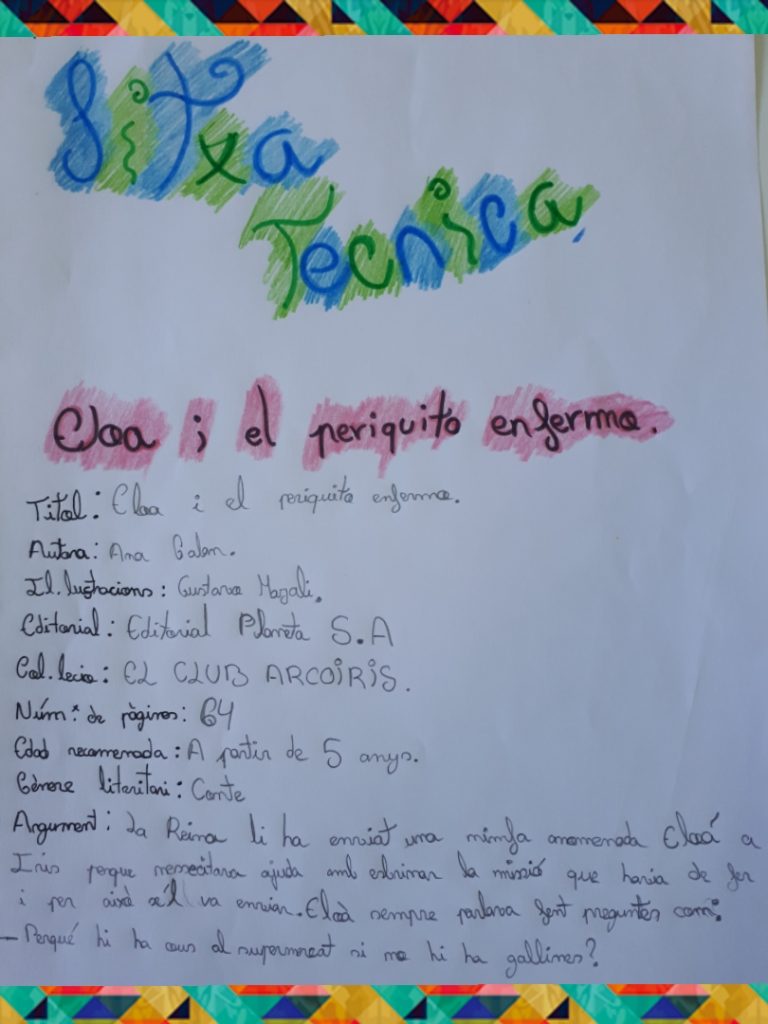 Fitxa
Tecnica.
Cloa i el periquito enfermo.
Títol: Cloa i el periquito enfermo.
Autora: Ana Galan.
Il.lustracions: Gustavo Magali.
Editorial: Editorial Planeta S.A
Col.lecio: EL CLUB ARCOIRIS.
Núm. de pàgines: 64
Edad recomenada: A partir de 5 anys.
Gènere literitari: Conte
Argument: La Reina li ha enviat una nimfa anomenada Cloá a
Iris perque nessecitava ajuda amb esbrinar la missió que havia de fer
i per això se'l va enviar. Cloà sempre parlava fent preguntes com:
- Perqué hi ha ous al supermercat si no hi ha gallines?